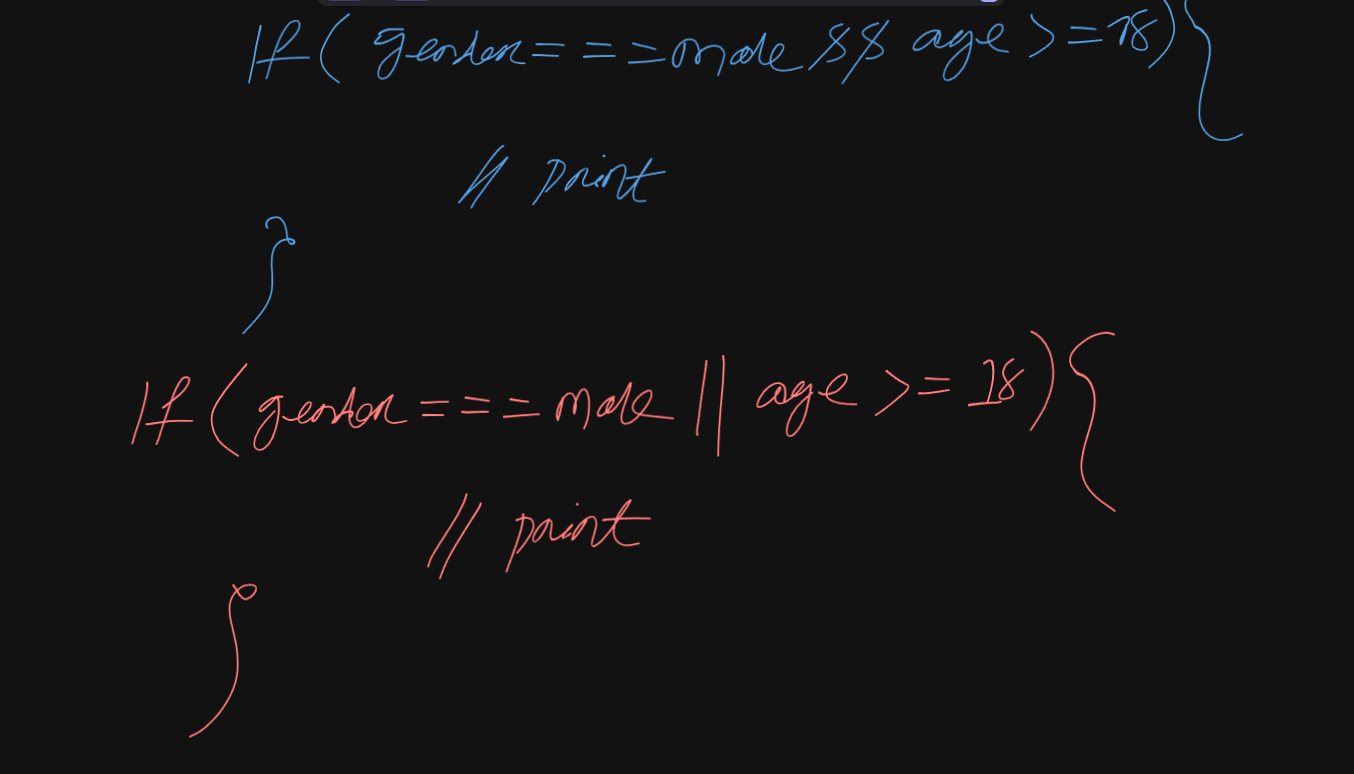 If( gender===male && age >=18){
// print
}
If(gender===male || age >= 18){
// print
}